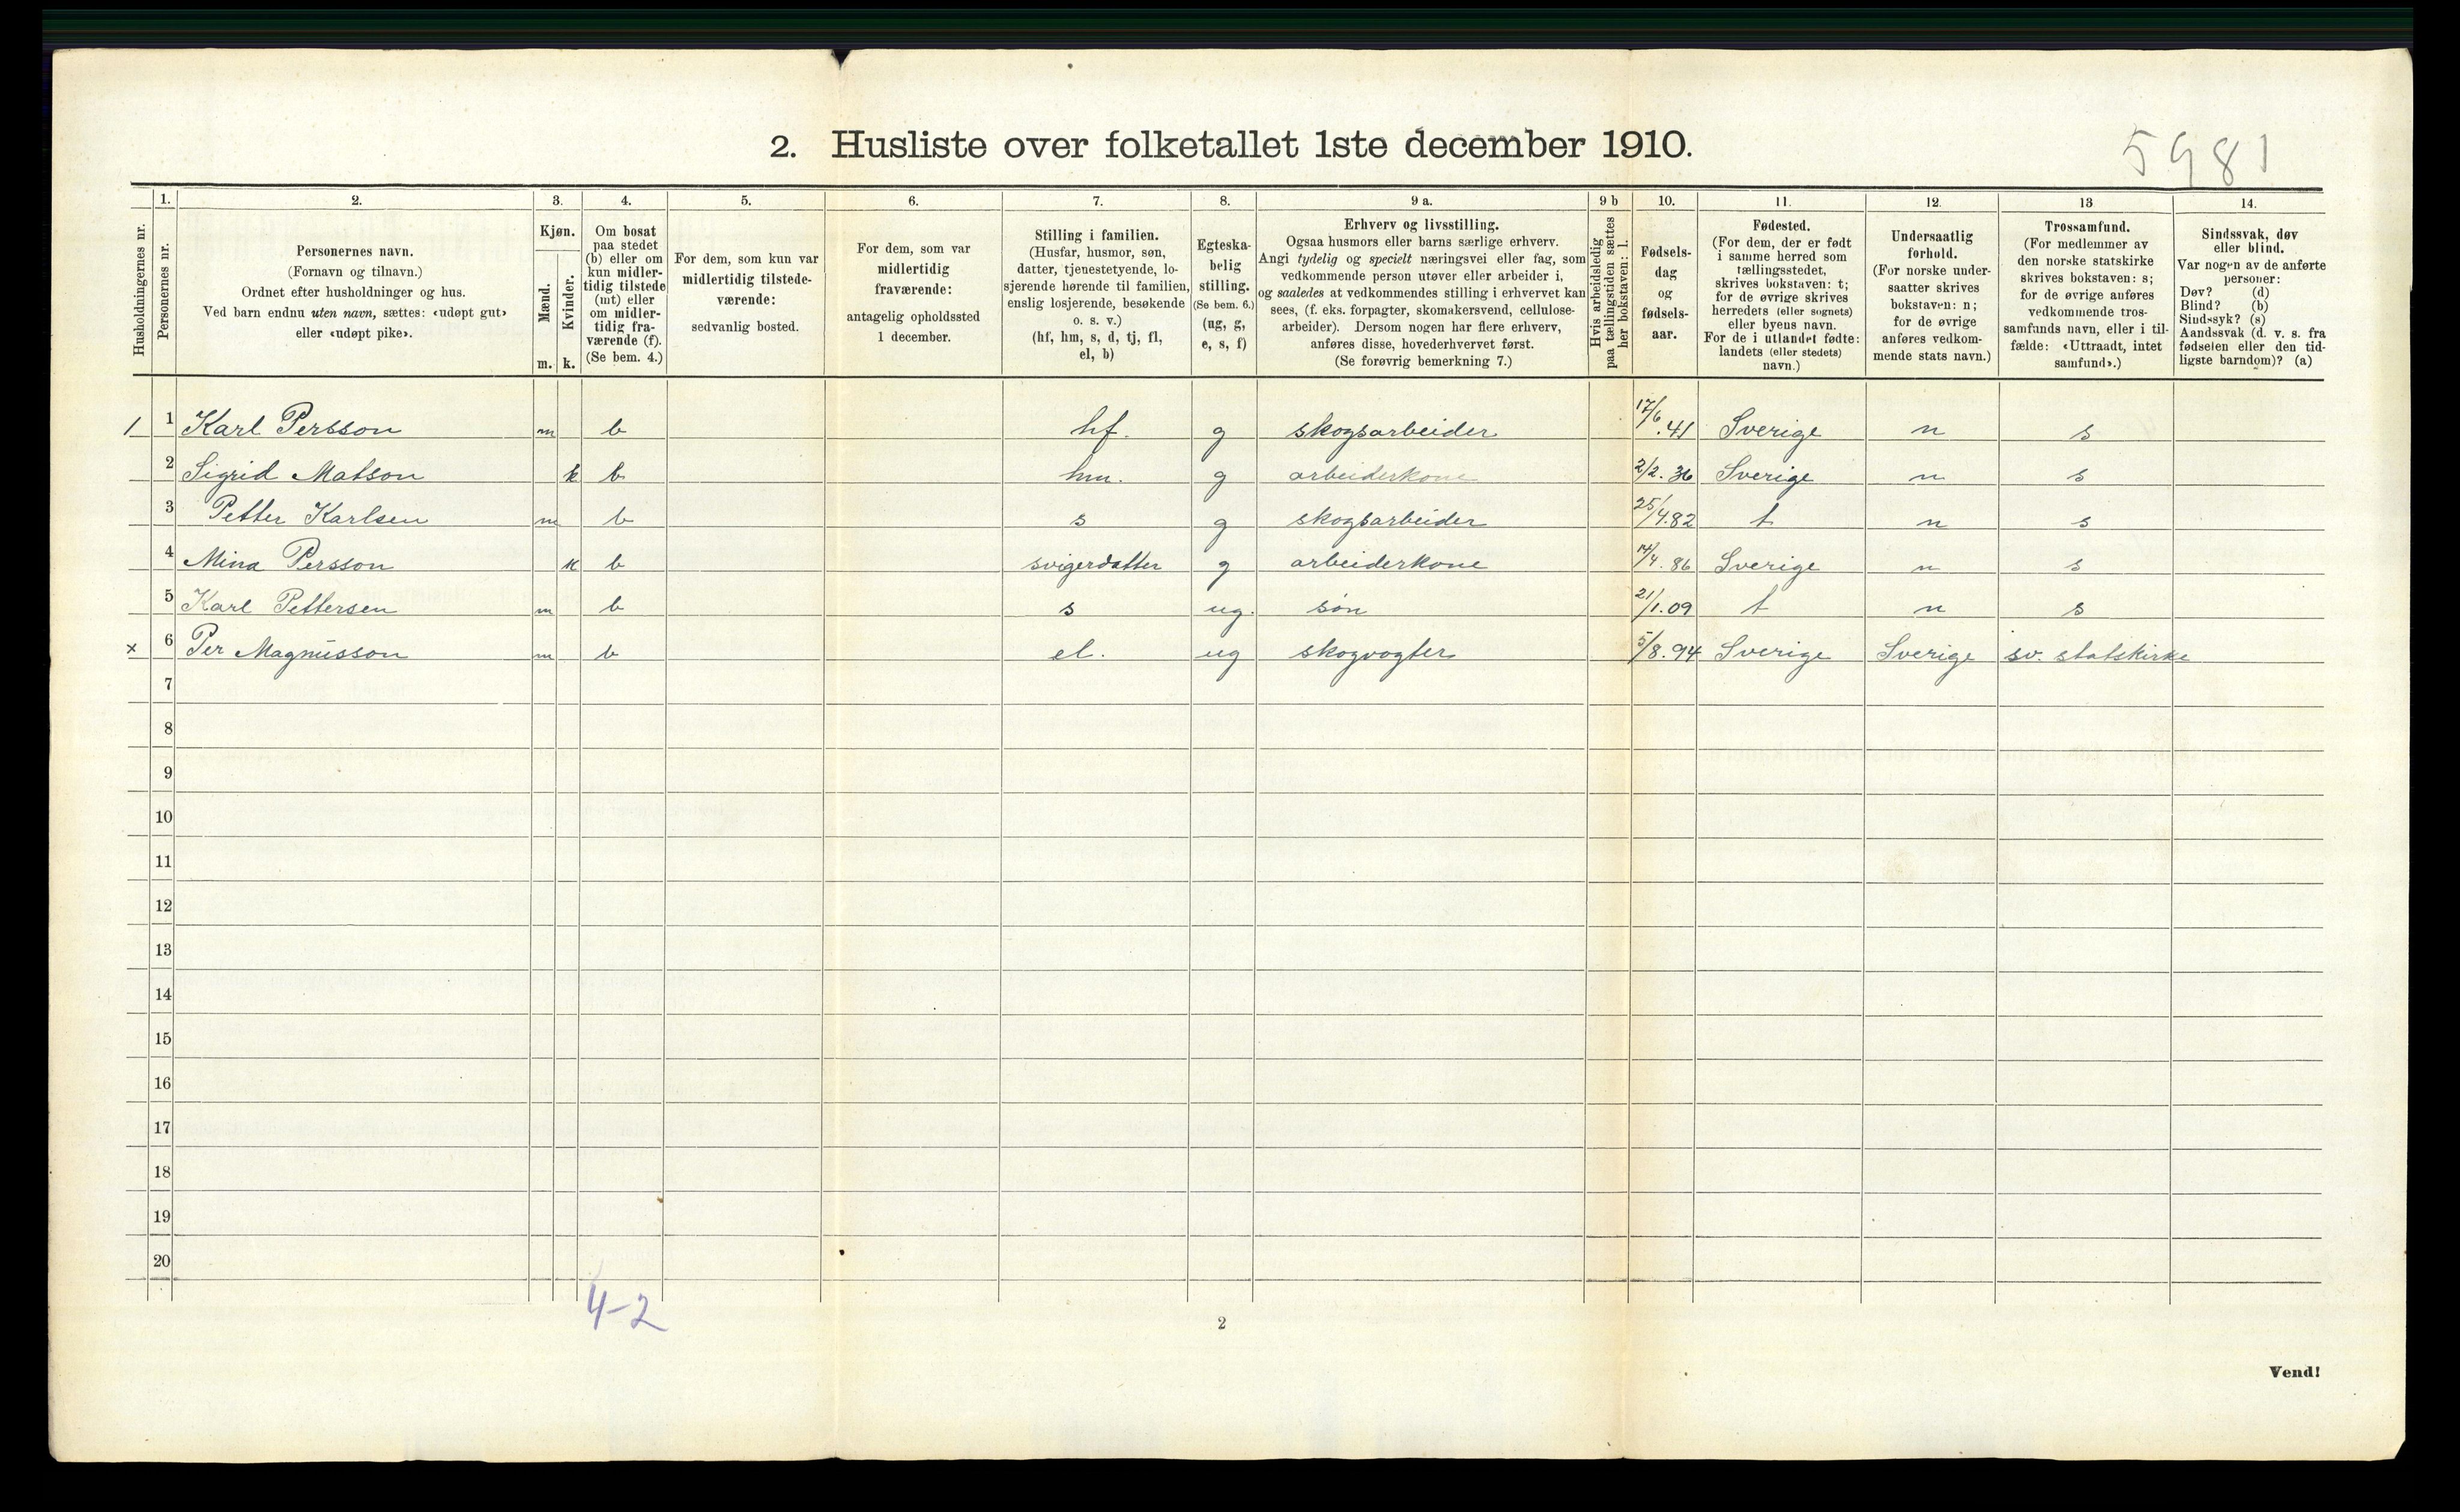 2. Husliste over folketallet 1ste december 1910.
5981
Husholdningernes nr.
1. Personernes nr.
2. Personernes navn. (Fornavn og tilnavn.) Ordnet efter husholdninger og hus. Ved barn endnu uten navn, sættes: «udøpt gut» eller «udøpt pike».
3. Kjøn. Mænd. m. Kvinder. k.
4. Om bosat paa stedet (b) eller om kun midlertidig tilstede (mt) eller om midlertidig fraværende (f). (Se bem. 4.)
5. For dem, som kun var midlertidig tilstedeværende: sedvanlig bosted.
6. For dem, som var midlertidig fraværende: antagelig opholdssted 1 december.
7. Stilling i familien. (Husfar, husmor, søn, datter, tjenestetyende, losjerende hørende til familien, enslig losjerende, besøkende o. s. v.) (hf, hm, s, d, tj, fl, el, b)
8. Egteskabelig stilling. (Se bem. 6.) (ug, g, e, s, f)
9 a. Erhverv og livsstilling. Ogsaa husmors eller barns særlige erhverv. Angi tydelig og specielt næringsvei eller fag, som vedkommende person utøver eller arbeider i, og saaledes at vedkommendes stilling i erhvervet kan sees, (f. eks. forpagter, skomakersvend, cellulosearbeider). Dersom nogen har flere erhverv, anføres disse, hovederhvervet først. (Se forøvrig bemerkning 7.)
9 b Hvis arbeidsledig paa tællingstiden sættes her bokstaven: l.
10. Fødselsdag og fødselsaar.
11. Fødested. (For dem, der er født i samme herred som tællingsstedet, skrives bokstaven: t; for de øvrige skrives herredets (eller sognets) eller byens navn. For de i utlandet fødte: landets (eller stedets) navn.)
12. Undersaatlig forhold. (For norske undersaatter skrives bokstaven: n; for de øvrige anføres vedkommende stats navn.)
13 Trossamfund. (For medlemmer av den norske statskirke skrives bokstaven: s; for de øvrige anføres vedkommende trossamfunds navn, eller i tilfælde: «Uttraadt, intet samfund».)
14. Sindssvak, døv eller blind. Var nogen av de anførte personer: Døv? (d) Blind? (b) Sindssyk? (s) Aandssvak (d. v. s. fra fødselen eller den tidligste barndom)? (a)
1 1 Karl Persson m b hf. g skogsarbeider 17/6.41 Sverige n s
2 Sigrid Matson k b hm. g arbeiderkone 2/2.36 Sverige n s
3 Petter Karlsen m b s g skogsarbeider 25/4.82 t n s
4 Mina Persson k b svigerdatter g arbeiderkone 14/4.86 Sverige n s
5 Karl Pettersen m b s ug. søn 21/1.09 t n s
x 6 Per Magnusson m b el. ug skogvogter 5/8.94 Sverige Sverige sv. statskirke
7
8
9
10
11
12
13
14
15
16
17
18
19
20
4-2
2
Vend!